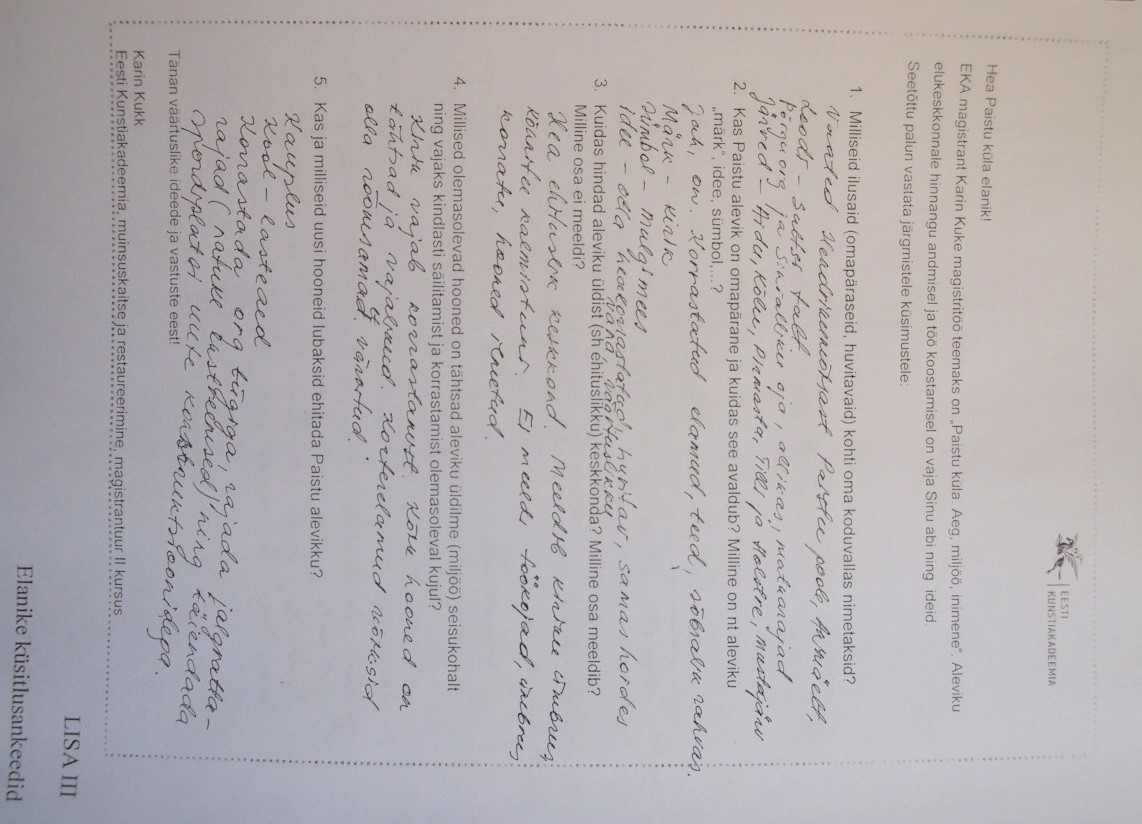 LISA III
Elanike küsitlusankeedid
EESTI
KUNSTIAKADEEMIA
Hea Paistu küla elanik!
EKA magistrant Karin Kuke magistritöö teemaks on „Paistu küla. Aeg, miljöö, inimene“. Aleviku
elukeskkonnale hinnangu andmisel ja töö koostamisel on vaja Sinu abi ning ideid.
Seetõttu palun vastata järgmistele küsimustele:
1. Milliseid ilusaid (omapäraseid, huvitavaid) kohti oma koduvallas nimetaksid?
Vaated Hendrikumõtsast Paistu poole, Anmäelt,
Loodi - Sultsi talst
Põrguorg ja Sinialliku oja, allikas, matkarajad
Järved - Hidu, Kölu, Premasta, Tilli ja Holstre, Mustajärv
2. Kas Paistu alevik on omapärane ja kuidas see avaldub? Milline on nt aleviku
„märk“, idee, sümbol,...?
Jah, on. Korrastatud elamud, teed, sõbralik rahvas.
Märk - kirik
Sümbol - Mulgi mees
Idee - olla heakorrastatud, huvitav, samas hoides
vana väärtuslikku
3. Kuidas hindad aleviku üldist (sh ehituslikku) keskkonda? Milline osa meeldib?
Milline osa ei meeldi?
Hea ehituslik keskkond. Meeldib kiriku ümbrus
kõnniteed kalmistuni. Ei meeldi töökojad, ümbrus
korratu, hooned räämas.
4. Millised olemasolevad hooned on tähtsad aleviku üldilme (miljöö) seisukohalt
ning vajaks kindlasti säilitamist ja korrastamist olemasoleval kujul?
Kirik vajab korrastamist. Kõik hooned on
tähtsad ja vajalikud. Korterelamud võiksid
olla rõõmsamad st. värvitud.
5. Kas ja milliseid uusi hooneid lubaksid ehitada Paistu alevikku?
Kauplus
Kool - lasteaed
Korrastada org tiigiga, rajada jalgratta-
rajad (natuke lusthooned) ning täiendada
spordiplatsi uute konstruktsioonidega.
Tänan väärtuslike ideede ja vastuste eest!
Karin Kukk
Eesti Kunstiakadeemia, muinsuskaitse ja restaureerimine, magistrantuur II kursus